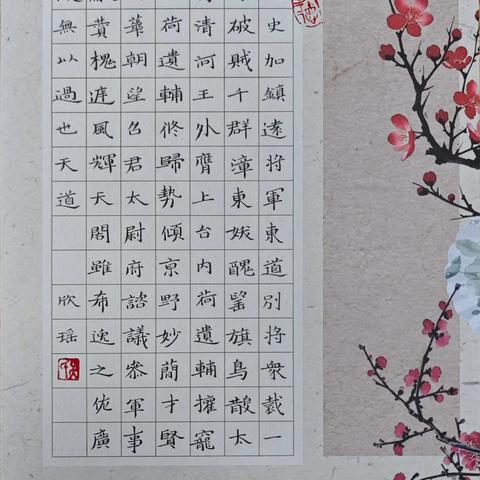 史加鎮遠將軍東道別將衆裁一
破賊千群漳東妖醜望旗鳥散太
清河王外膺上台內荷遺輔擁寵
荷遺輔修歸勢傾京野妙簡才賢
華朝望召君太尉府諮議參軍事
槐庭風輝天閣雖希逸之佐廣
無以過也天道 欣瑶